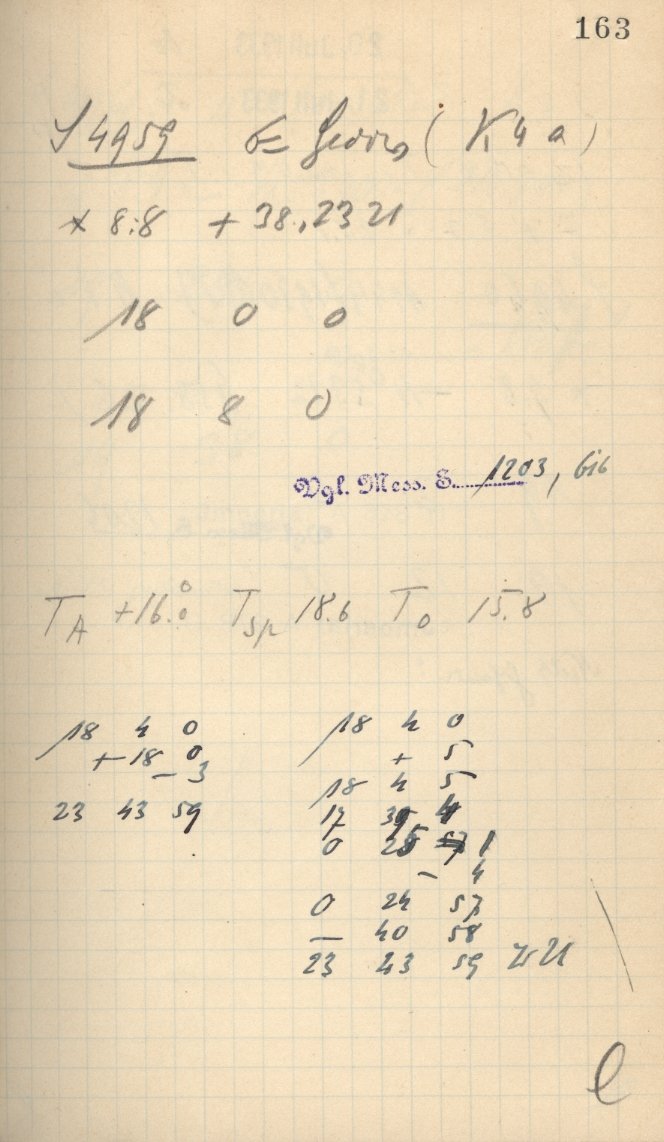 163
S 4959 (K 4 a)
8.8 + 38.,23 21
18 0 0
18 8 0
Vgl. Mess. S. 1203, bis
T_A +16.°0 T_Sp 18.6 T_O 15.8
18 4 0
+ 18 0
- 3
23 43 59
18 4 0
+ 5
18 4 5
17 39 4
0 25 1
- 4
0 24 57
- 40 58
23 43 59 21